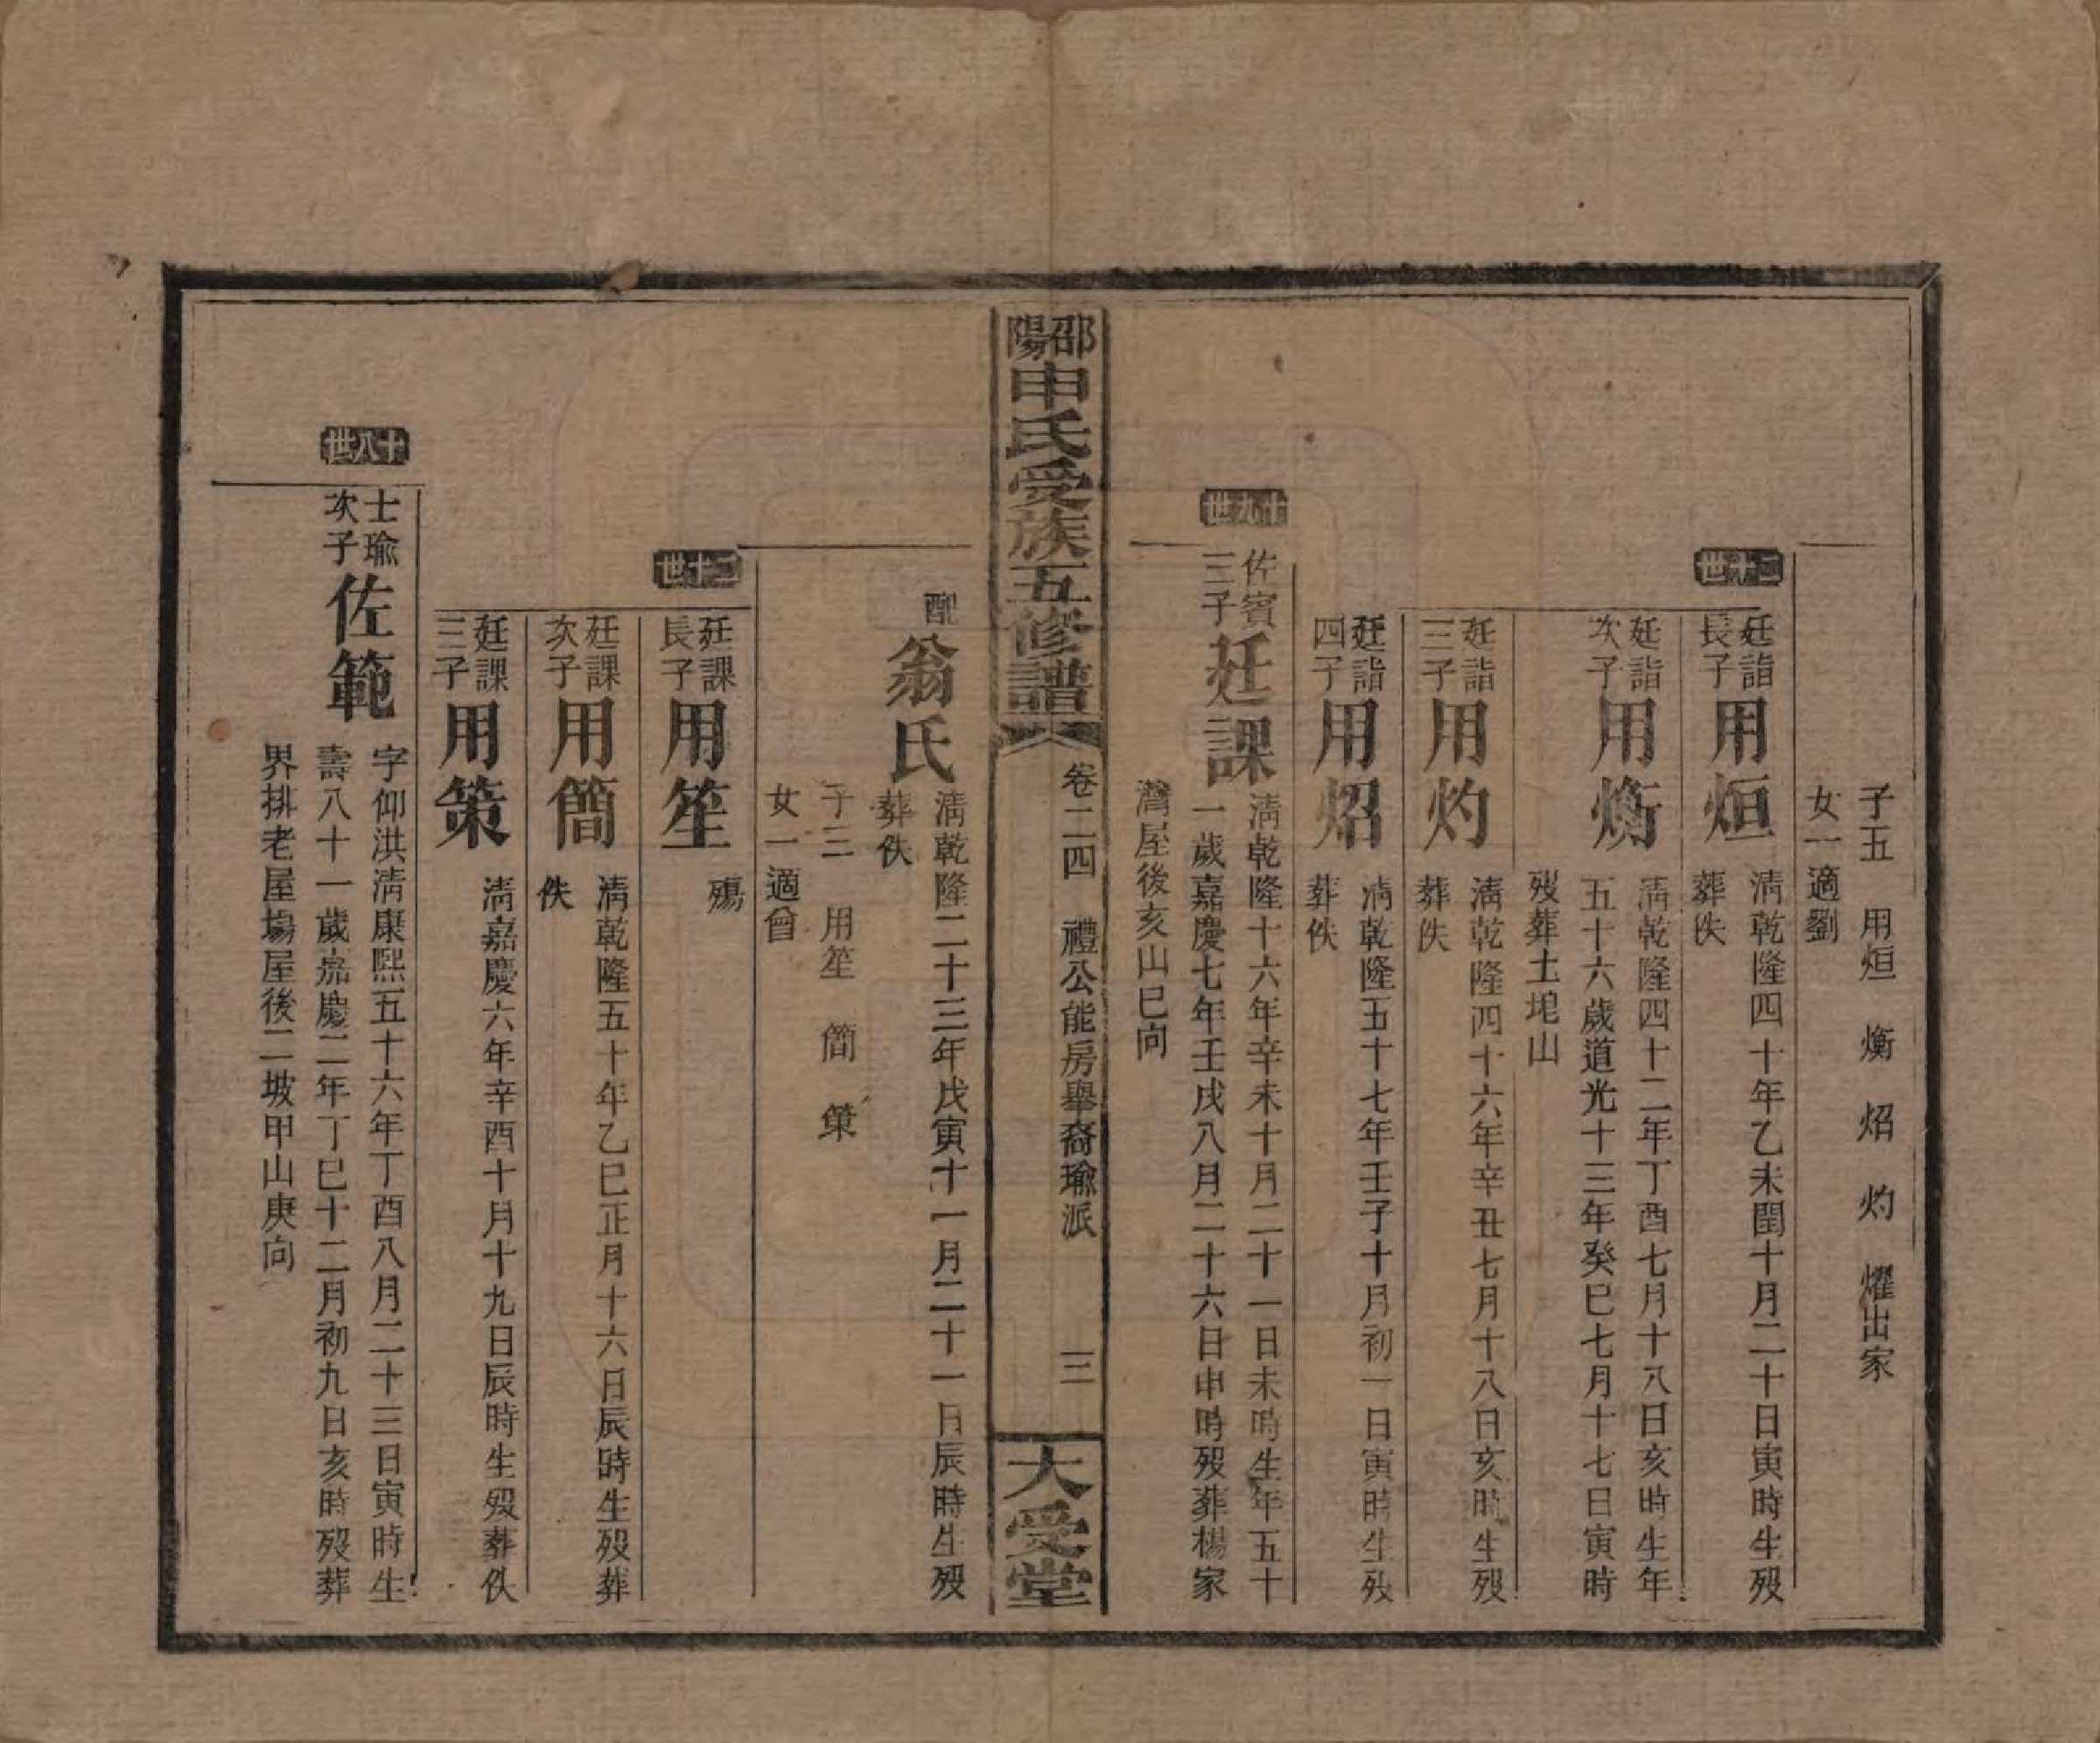 子五　用烜　㷹　炤　灼　燿出家
女一適劉
二十世
廷詣長子
用烜
清乾隆四十年乙未閏十月二十日寅時生歿
葬佚
廷詣次子
用㷹
清乾隆四十二年丁酉七月十八日亥時生年
五十六歲道光十三年癸巳七月十七日寅時
歿葬土地山
廷詣三子
用灼
清乾隆四十六年辛丑七月十八日亥時生歿
葬佚
廷詣四子
用炤
清乾隆五十七年壬子十月初一日寅時生歿
葬佚
十九世
佐賓三子
廷課
清乾隆十六年辛未十月二十一日未時生年五十
一歲嘉慶七年壬戌八月二十六日申時歿葬楊家
灣屋後亥山巳向
邵陽申氏受族五修譜
卷二四　禮公能房舉裔瑜派
三
大受堂
配
翁氏
清乾隆二十三年戊寅十一月二十一日辰時生歿
葬佚
子三　用笙　簡　策
女一適曾
二十世
廷課長子
用笙
殤
廷課次子
用簡
清乾隆五十年乙巳正月十六日辰時生歿葬
佚
廷課三子
用策
清嘉慶六年辛酉十月十九日辰時生歿葬佚
十八世
士瑜次子
佐範
字仰洪清康熙五十六年丁酉八月二十三日寅時生
壽八十一歲嘉慶二年丁巳十二月初九日亥時歿葬
界排老屋塲屋後二坡甲山庚向